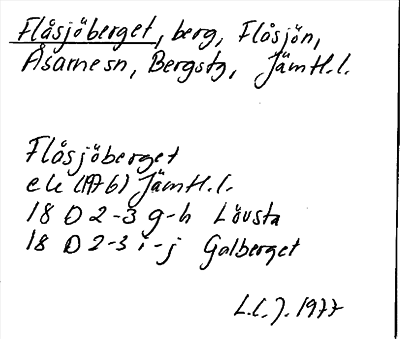 Flåsjöberget, berg, Flåsjön,
Åsarnesn, Bergstg, Jämtl.l.
Flåsjöberget
ek (1976) Jämtl.l.
18 D 2-3 g-h Lövsta
18 D 2-3 i-j Galberget
L.L.J. 1977